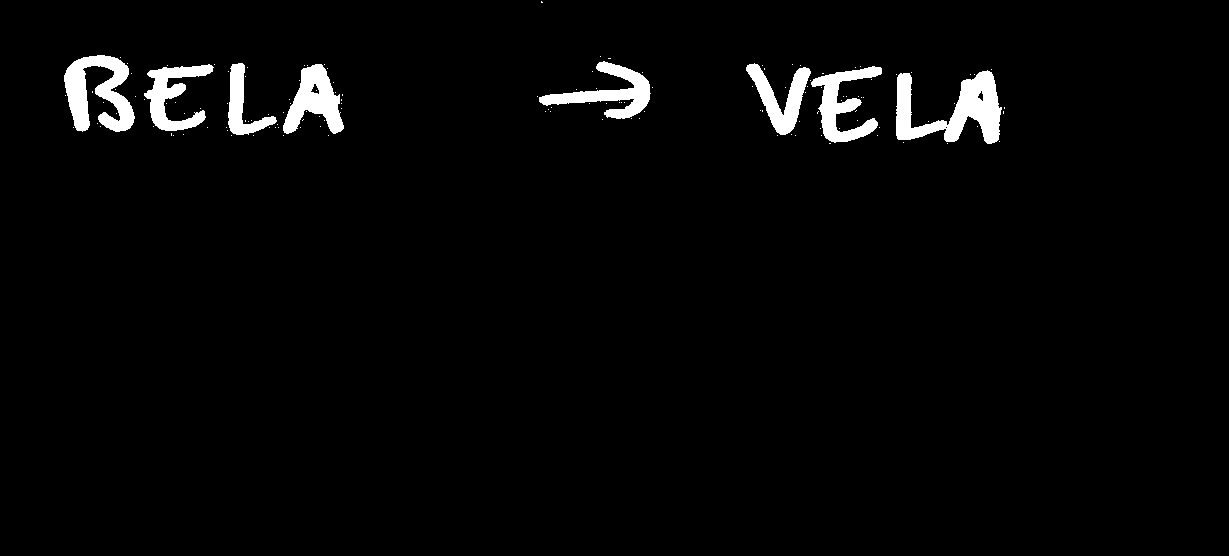 BELA → VELA